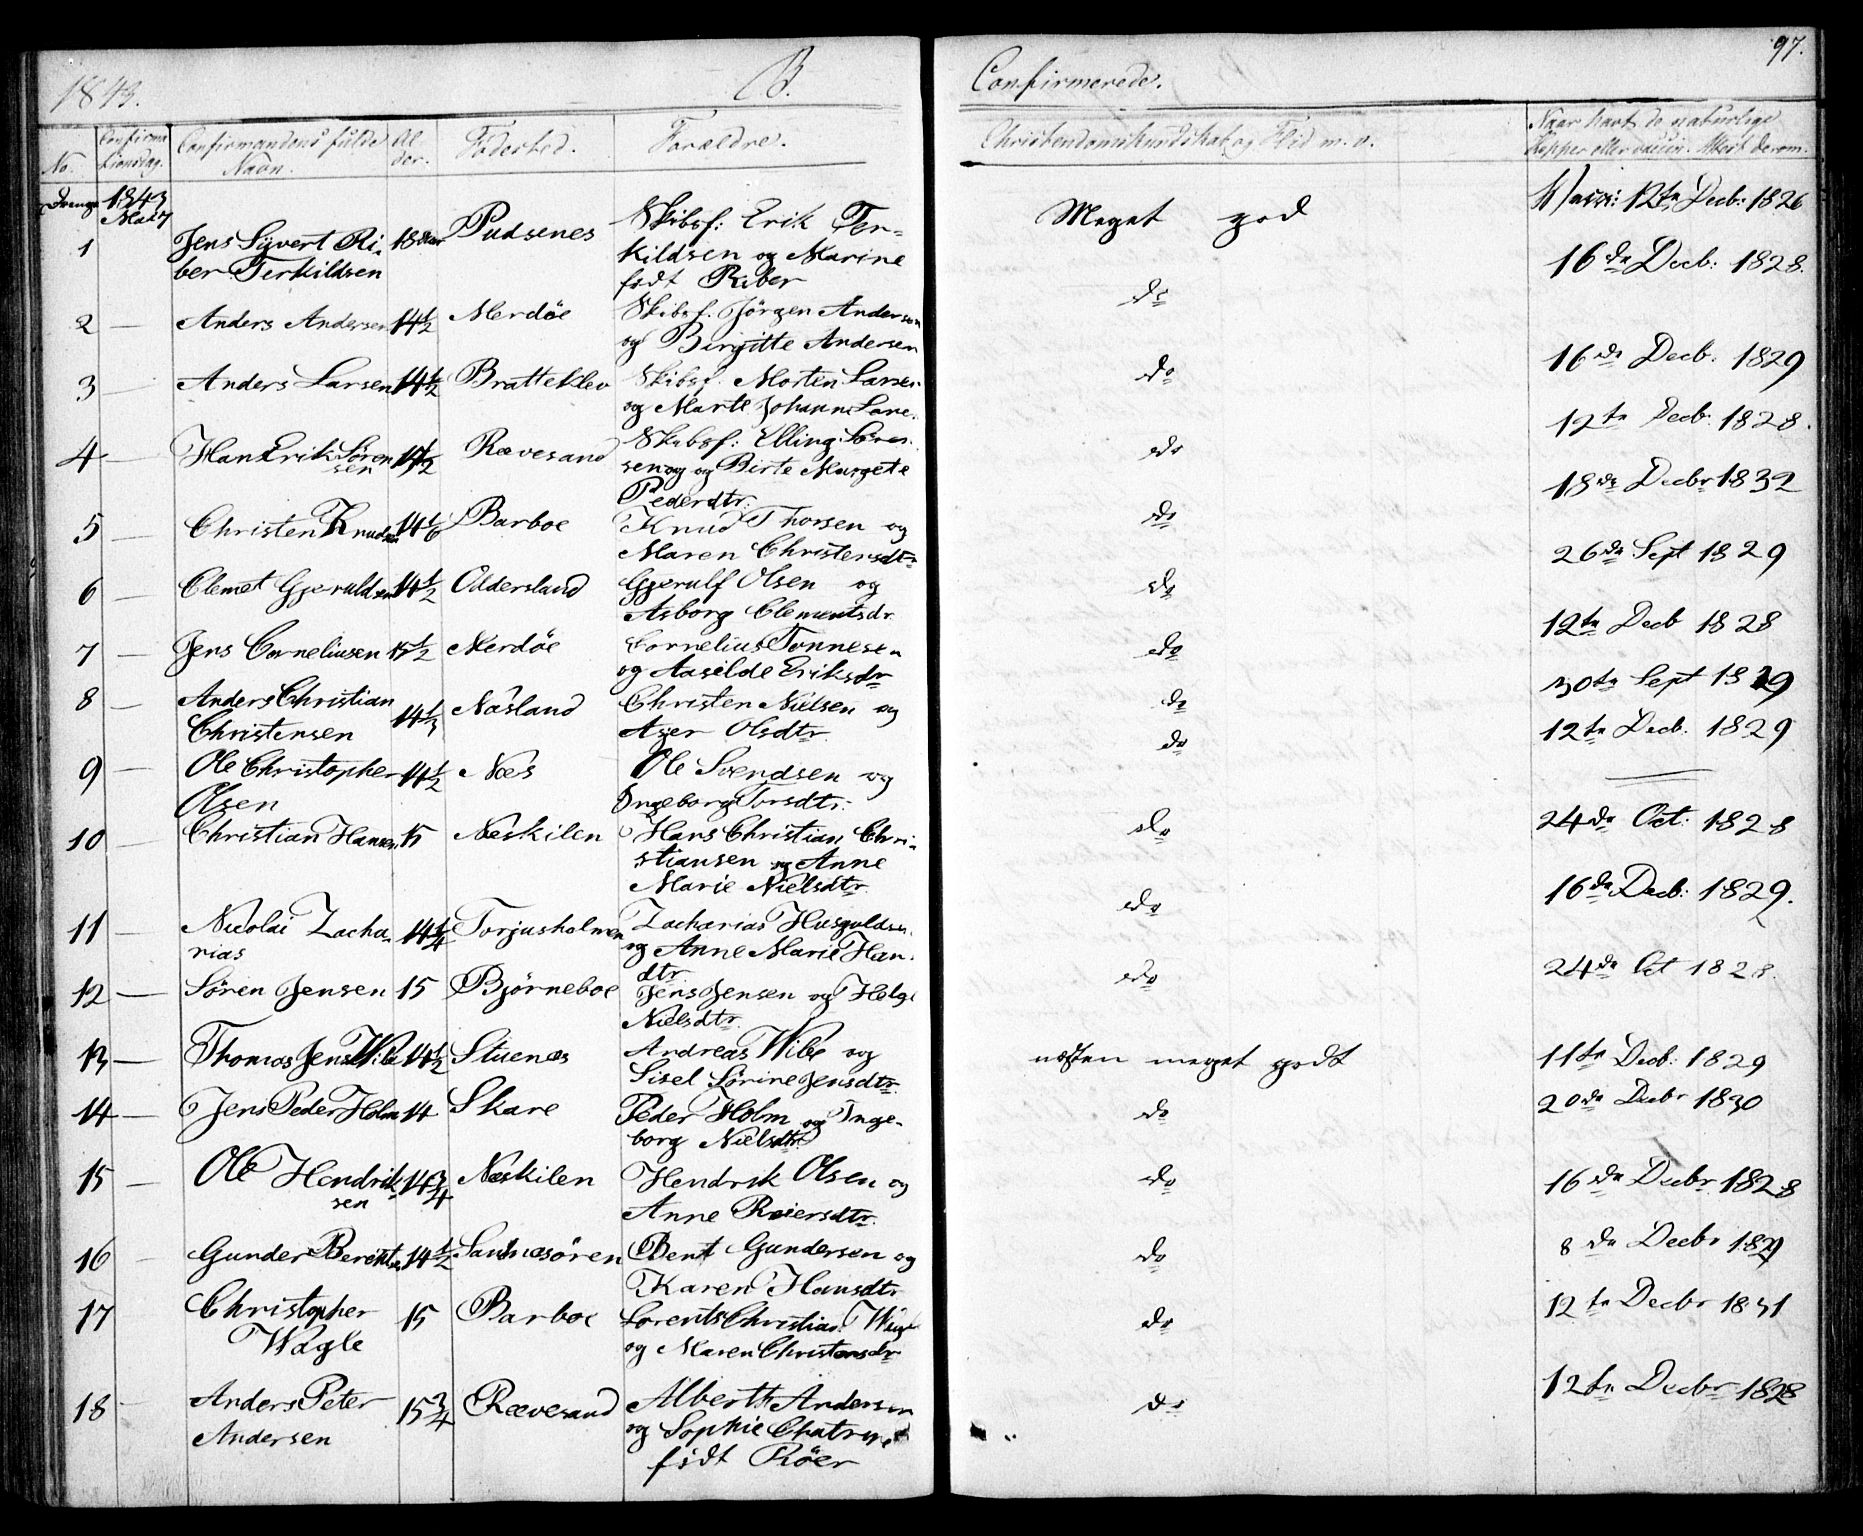 1843.
B.
Confirmerede.
97.
No.
Confirma
tionsdag.
Confirmandens fulde
Navn.
Al-
der.
Födested.
Forældre.
Christendomskundskab og Flid m. v.
Naar havt de naturlige
Kopper eller vaccin. Attest derom.
Drenge 1843
Mai 7
1 Jens Syvert Ri-
ber Terkildsen
18 Aar
Pudsenes
Skibsf: Erik Ter-
kildsen og Marine
født Riber
Meget god
Vacci: 12te Decb: 1826
2 — Anders Andersen 14½ Merdöe
Skibsf. Jörgen Andersen
og Birgitte Andersen
do
16de Decb: 1828.
3 — Anders Larsen 14½ Bratteklev
Skibsf. Morten Larsen
og Marte Johanne
do
16de Decb. 1829
4 — Hans Erik Sören
sen
14½ Rævesand
Skibsf: Elling Sören
sen og og Birte Margete
Pederdtr.
do
12te Decb. 1828.
5 — Christen Knudsen 14 1/6 Barboe
Knud Thorsen og
Maren Christensdtr
do
18de Decbr 1832
6 — Clemet Gjeruldsen 14½ Oddersland
Gjerulf Olsen og
Asborg Clementsdr.
do
26de Sept 1829
7 — Jens Corneliusen 15½ Merdöe
Cornelius Tonnesen
og Aaselde Eriksdr
do
12te Decb 1828
8 — Anders Christian
Christensen
14⅓ Næsland
Christen Nielsen og
Aser Olsdtr.
do
30te Sept 1829
9 — Ole Christopher
Olsen
14½ Næs
Ole Svendsen og
Ingeborg Torsdtr.
do
12te Decb. 1829
10 Christian Hansen 15 Neskilen
Hans Christian Chri-
stiansen og Anne
Marie Nielsdtr.
do
24de Oct: 1828
11 — Nicolai Zacha-
rias
14¼ Torjusholmen
Zacharias
og Anne Marie Han.
dtr
do
16de Decb: 1829.
12 — Sören Jensen 15 Bjørneboe
Jens Jensen og Helge
Nielsdtr.
do
24de Oct 1828.
13 — Thomas Jens Wibe 14½ Stuenæs
Andreas Wibe og
Sisel Sörine Jensdtr.
næsten meget godt
11te Decb: 1829
14 — Jens Peder Holm 14 Skare
Peder Holm og Inge-
borg Nielsdtr
do
20de Decbr 1830
15 — Ole Hendrik
sen
14¾ Neskilen
Hendrik Olsen og
Anne Reiersdtr.
do
16de Decbr 1828
16 — Gunder Berentsen 14½ Sandnæsören
Bent Gundersen og
Karen Hansdtr
do
8 de Decbr 1829
17 Christopher
Wagle
15 Barboe
Lorents Christian Wagle
og Maren Christensdr
do
12te Decbr 1831
18 — Anders Peter
Andersen
15¾ Rævesand
Alberth Andersen
og Sophie Chatrine
født Röer
do
12te Decbr 1828